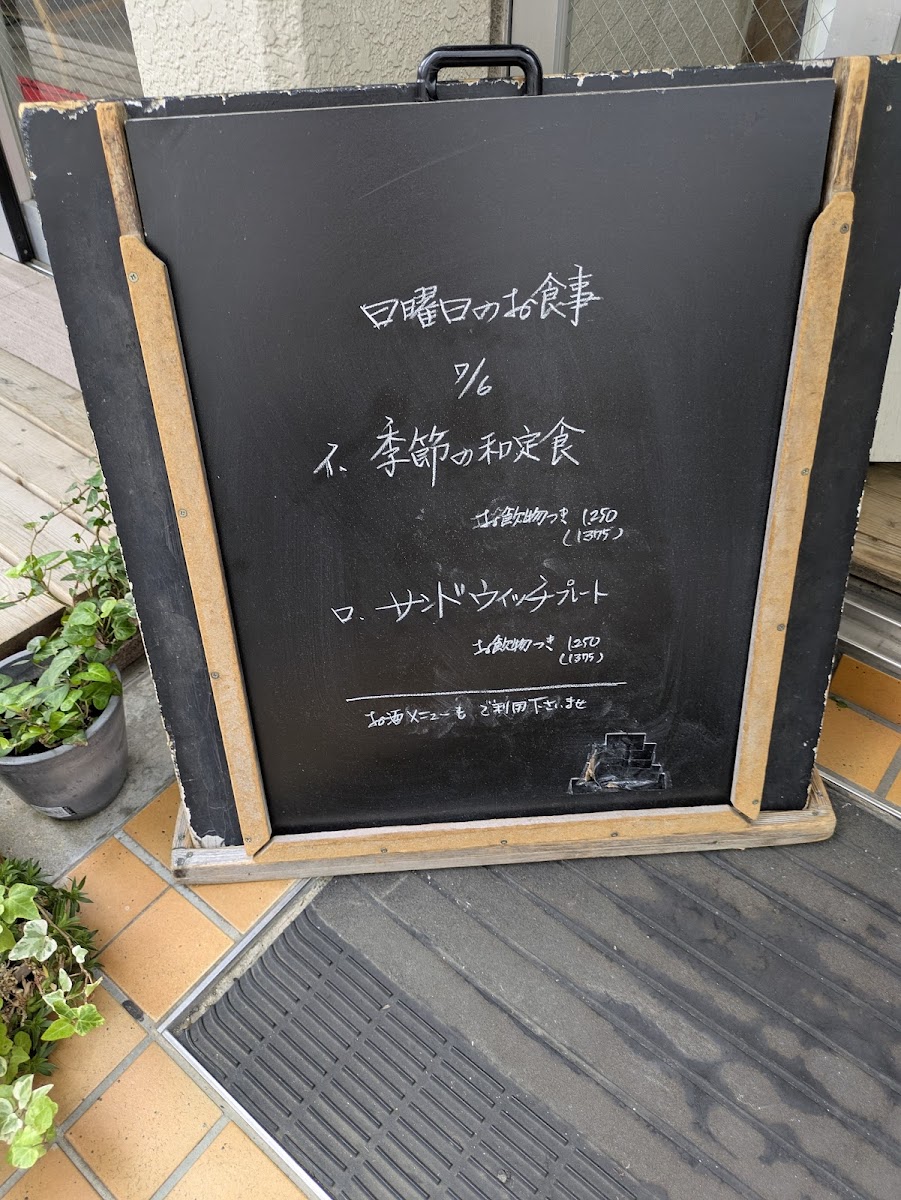 日曜日のお食事
7/6
イ、季節の和定食
お飲物つき 1,250
(1375)
ロ、サンドウィッチプレート
お飲物つき 1250
(1375)
お酒メニューも ご利用下さいませ